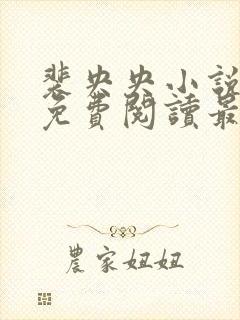 裴央央小說
免費閱讀最
農家妞妞